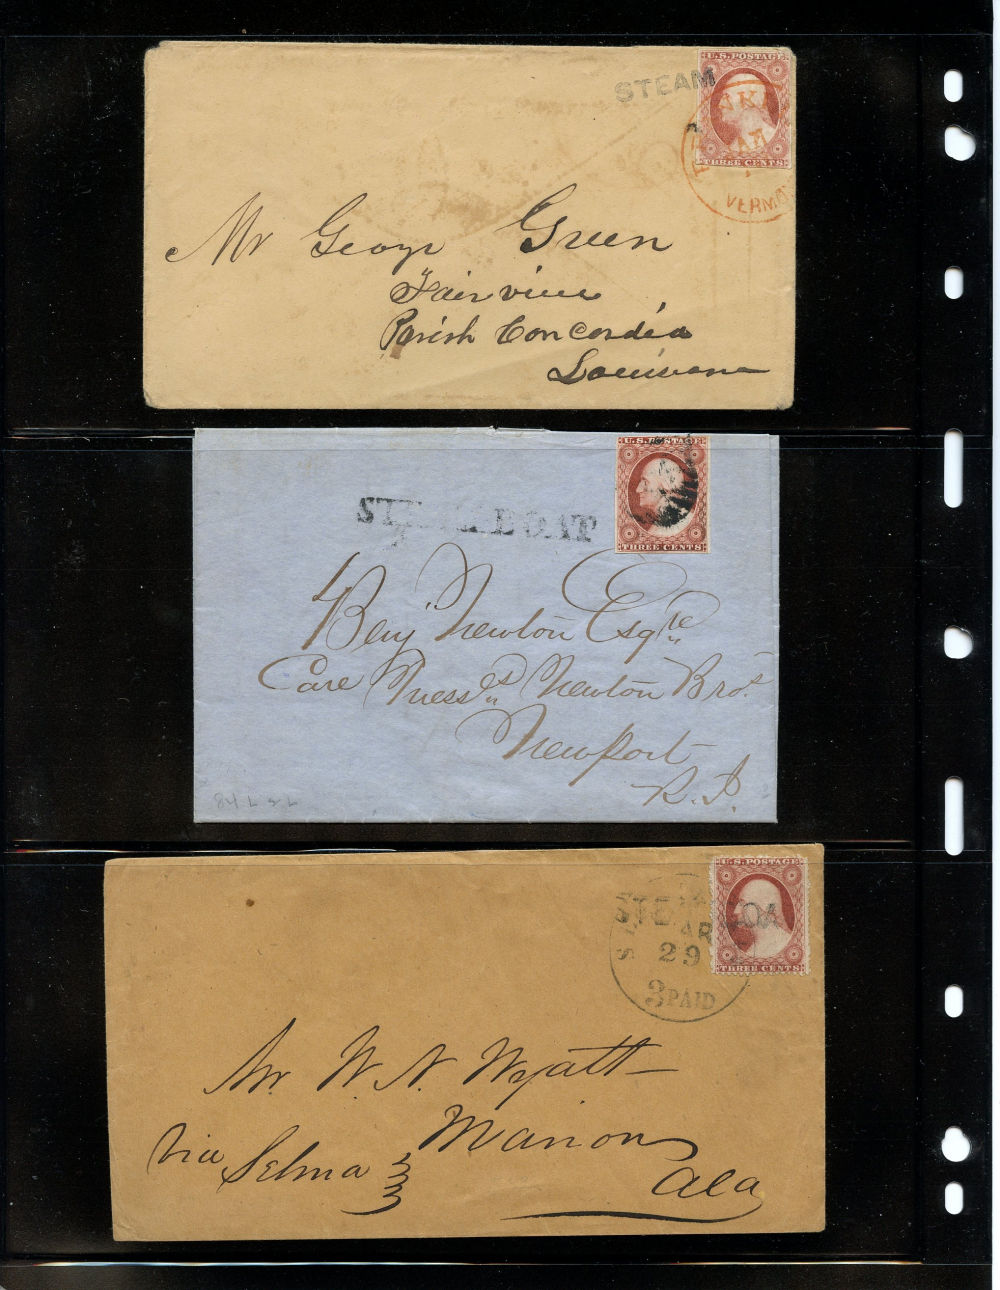 STEAM
U.S. POSTAGE
THREE CENTS
VERMO
Mr George Green
Fairview
Parish Concordia
Louisiana
U.S. POSTAGE
THREE CENTS
STEAMBOAT
Benj Newton Esqre
Care Messrs Newton Bros
Newport
R.I.
84 L & L
U.S. POSTAGE
THREE CENTS
STEA OA
AR
29
3 PAID
Mr W. N. Wyatt
Marion
Via Selma
Ala